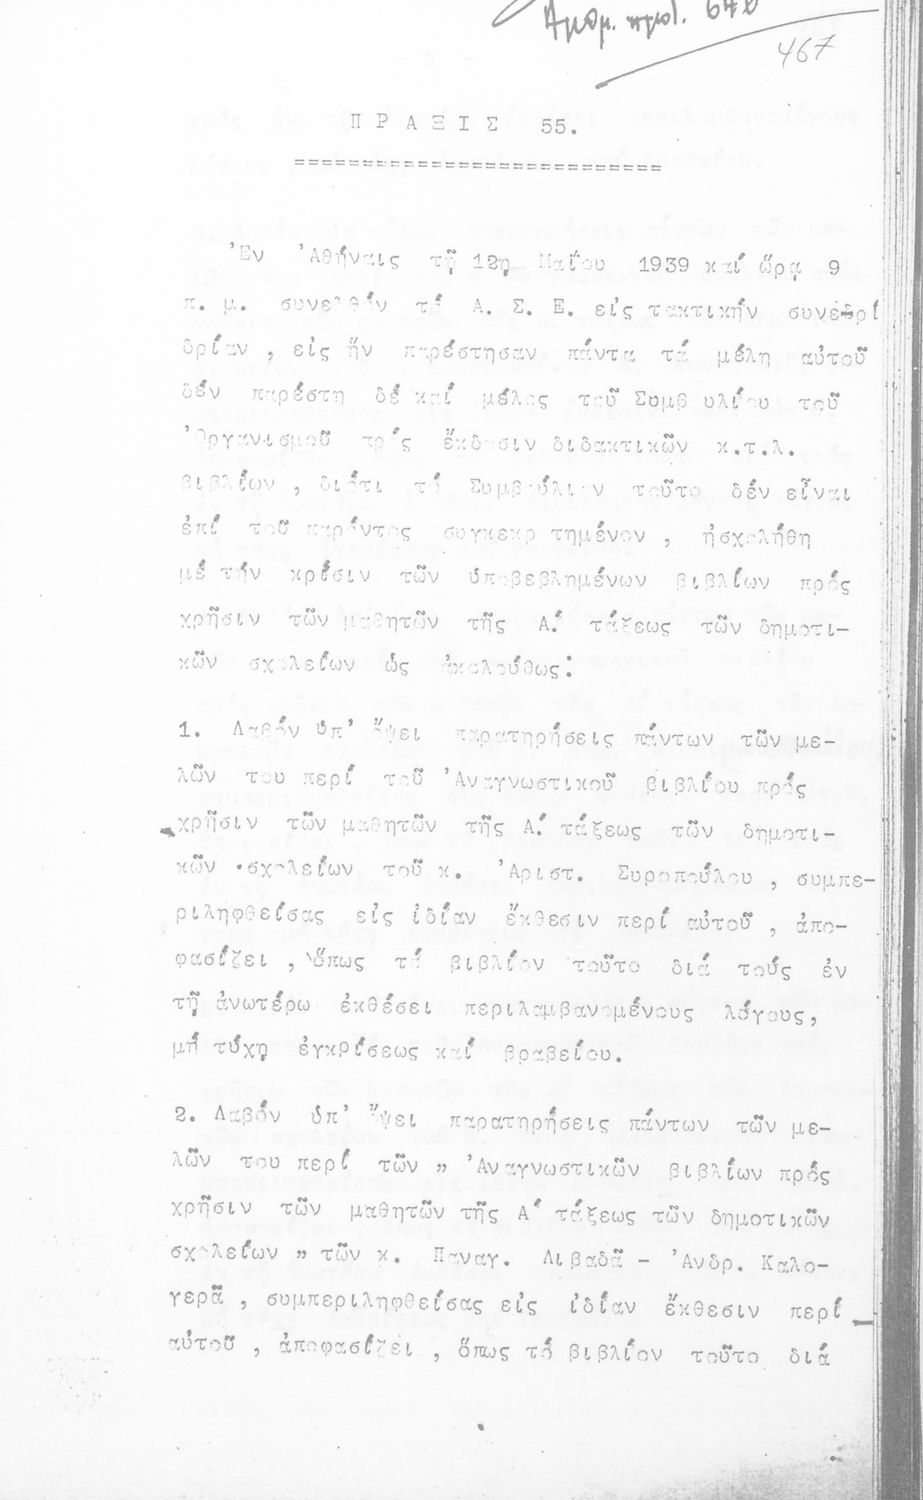 Αριθμ. πρωτ. 670
467
Π Ρ Α Ξ Ι Σ 55.
============================
Ἐν Ἀθήναις τῇ 12ῃ Μαΐου 1939 καί ὥρᾳ 9
π. μ. συνελθόν τό Α. Σ. Ε. εἰς τακτικήν συνεδρί
δρίαν , εἰς ἥν παρέστησαν πάντα τά μέλη αὐτοῦ
δέν παρέστη δέ καί μέλος τοῦ Συμβουλίου τοῦ
Ὀργανισμοῦ πρός ἔκδοσιν διδακτικῶν κ.τ.λ.
βιβλίων , διότι τό Συμβούλιον τοῦτο δέν εἶναι
ἐπί τοῦ παρόντος συγκεκροτημένον , ἠσχολήθη
μέ τήν κρίσιν τῶν ὑποβεβλημένων βιβλίων πρός
χρῆσιν τῶν μαθητῶν τῆς Α΄ τάξεως τῶν δημοτι-
κῶν σχολείων ὡς ἀκολούθως:
1. Λαβόν ὑπ' ὄψει παρατηρήσεις πάντων τῶν με-
λῶν του περί τοῦ Ἀναγνωστικοῦ βιβλίου πρός
χρῆσιν τῶν μαθητῶν τῆς Α΄ τάξεως τῶν δημοτι-
κῶν σχολείων τοῦ κ. Ἀριστ. Συροπούλου , συμπε-
ριληφθείσας εἰς ἰδίαν ἔκθεσιν περί αὐτοῦ , ἀπο-
φασίζει , ὅπως τό βιβλίον τοῦτο διά τούς ἐν
τῇ ἀνωτέρω ἐκθέσει περιλαμβανομένους λόγους,
μή τύχῃ ἐγκρίσεως καί βραβείου.
2. Λαβόν ὑπ' ὄψει παρατηρήσεις πάντων τῶν με-
λῶν του περί τῶν " Ἀναγνωστικῶν βιβλίων πρός
χρῆσιν τῶν μαθητῶν τῆς Α΄ τάξεως τῶν δημοτικῶν
σχολείων " τῶν κ. Παναγ. Λιβαδᾶ - Ἀνδρ. Καλο-
γερᾶ , συμπεριληφθείσας εἰς ἰδίαν ἔκθεσιν περί
αὐτοῦ , ἀποφασίζει , ὅπως τό βιβλίον τοῦτο διά